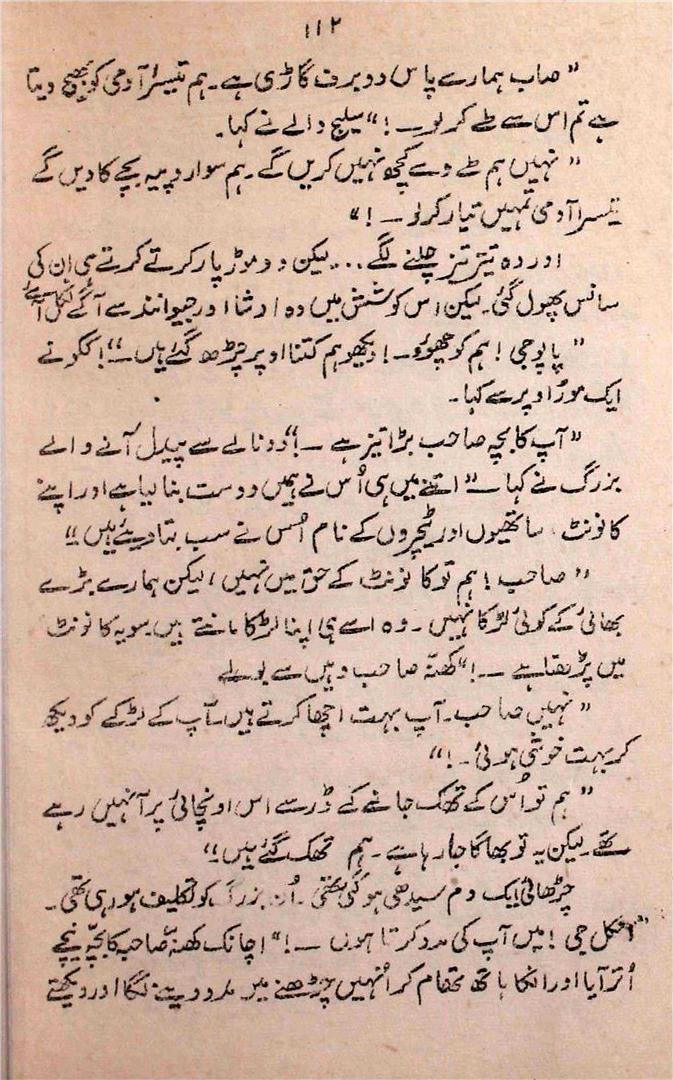 ۱۱۲
"صاب ہمارے پاس دو برف گاڑی ہے۔ ہم تیسرا آدمی کو بھیج دیتا
ہے تم اس سے طے کر لو ــ!" سلیج والے نے کہا۔
"نہیں ہم طے وے کچھ نہیں کریں گے۔ ہم سوا روپیہ بچے کا دیں گے
تیسرا آدمی تمہیں تیار کر لو ــ!"
اور وہ تیز تیز چلنے لگے... لیکن دو موڑ پار کرتے کرتے ہی ان کی
سانس پھول گئی۔ لیکن اس کوشش میں وہ ارشا اور جیوانند سے آگے نکل آئے
"پاپو جی! ہم کو چھوؤ ــ! دیکھو ہم کتنا اوپر چڑھ گئے ہیں ــ!" ککو نے
ایک موڑ اوپر سے کہا۔
"آپ کا بچہ صاحب بڑا تیز ہے ــ!" دونالے سے پیدل آنے والے
بزرگ نے کہا ــ "اتنے میں ہی اُس نے ہمیں دوست بنا لیا ہے اور اپنے
کانونٹ، ساتھیوں اور ٹیچروں کے نام اُس نے سب بتا دیئے ہیں"
"صاحب! ہم تو کانونٹ کے حق میں نہیں، لیکن ہمارے بڑے
بھائی کے کوئی لڑکا نہیں۔ وہ اسے ہی اپنا لڑکا مانتے ہیں۔ سو یہ کانونٹ
میں پڑھتا ہے ــ!" کھنّہ صاحب وہیں سے بولے
"نہیں صاحب۔ آپ بہت اچھا کرتے ہیں۔ آپ کے لڑکے کو دیکھ
کر بہت خوشی ہوئی ــ!"
"ہم تو اُس کے تھک جانے کے ڈر سے اس اونچائی پر آ نہیں رہے
تھے۔ لیکن یہ تو بھاگا جا رہا ہے۔ ہم تھک گئے ہیں"
چڑھائی ایک دم سیدھی ہو گئی تھی۔ اُن بزرگ کو تکلیف ہو رہی تھی۔
"انکل جی! میں آپ کی مدد کرتا ہوں ــ!" اچانک کھنّہ صاحب کا بچّہ نیچے
اُتر آیا اور انکا ہاتھ تھام کر اُنہیں چڑھنے میں مدد دینے لگا اور دیکھتے